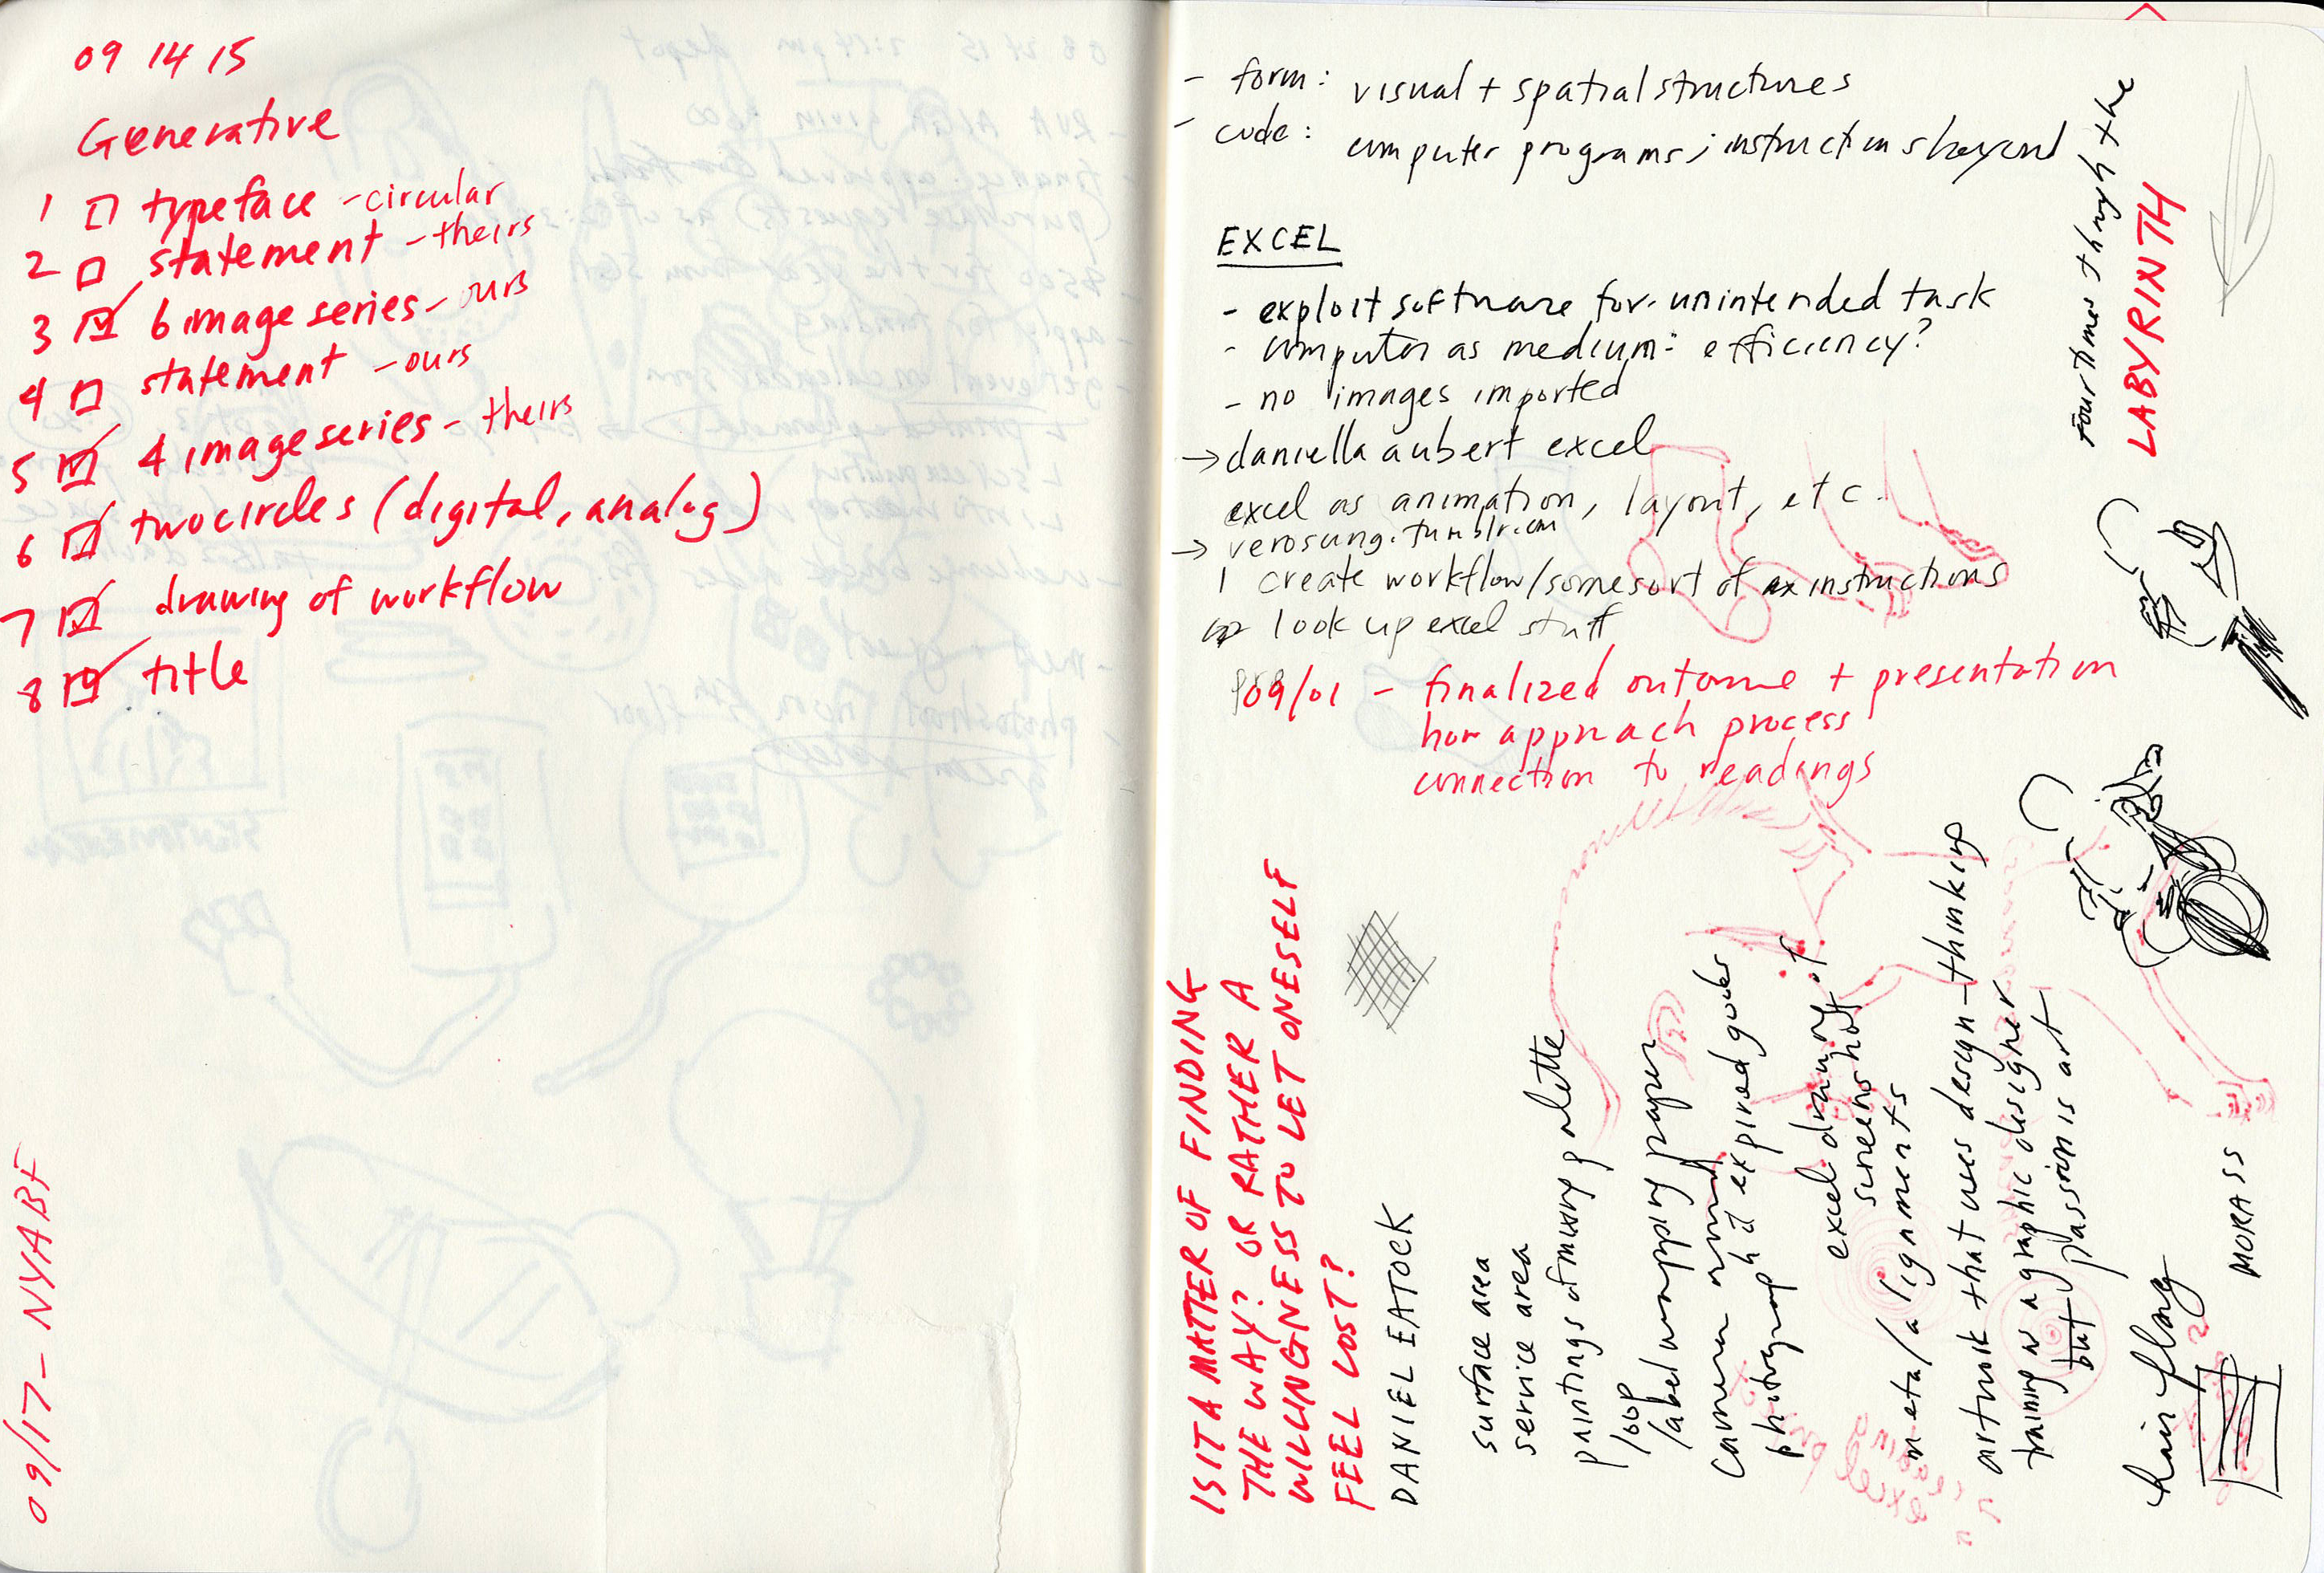 09 14 15
Generative
1 typeface - circular
2 statement - theirs
3 6 image series - ours
4 statement - ours
5 4 image series - theirs
6 two circles (digital, analog)
7 drawing of workflow
8 title
09/17 - NYABF
- form: visual + spatial structures
- code: computer programs; instructions beyond
EXCEL
- exploit software for unintended task
- computer as medium: efficiency?
- no images imported
→ daniella aubert excel
excel as animation, layout, etc.
→ verosung.tumblr.com
1 create workflow/some sort of instructions
look up excel stuff
09/01 - finalized outcome + presentation
how approach process
connection to readings
four times through the
LABYRINTH
IS IT A MATTER OF FINDING
THE WAY? OR RATHER A
WILLINGNESS TO LET ONESELF
FEEL LOST?
DANIEL EATOCK
surface area
service area
paintings of mixing palette
loop
label wrapping paper
camera
photograph expired goods
excel drawing of
screenshot
meta/alignments
artwork that uses design-thinking
training as a graphic designer
but passion is art
MORASS